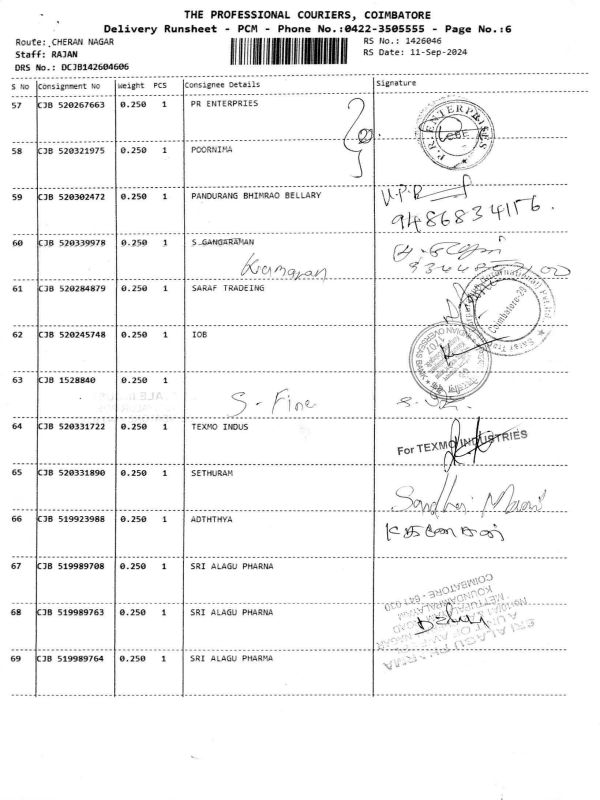 THE PROFESSIONAL COURIERS, COIMBATORE
Delivery Runsheet - PCM - Phone No.:0422-3505555 - Page No.:6
Route: CHERAN NAGAR RS No.: 1426046
Staff: RAJAN RS Date: 11-Sep-2024
DRS No.: DCJB142604606
S No Consignment No Weight PCS Consignee Details Signature
57 CJB 520267663 0.250 1 PR ENTERPRIES
P.R. ENTERPRISES
CBE
58 CJB 520321975 0.250 1 POORNIMA
59 CJB 520302472 0.250 1 PANDURANG BHIMRAO BELLARY
U.P.R
9486834156.
60 CJB 520339978 0.250 1 S GANGARAMAN
61 CJB 520284879 0.250 1 SARAF TRADEING
Coimbatore-29
62 CJB 520245748 0.250 1 IOB
63 CJB 1528840 0.250 1
S - Fine
64 CJB 520331722 0.250 1 TEXMO INDUS
For TEXMO INDUSTRIES
65 CJB 520331890 0.250 1 SETHURAM
66 CJB 519923988 0.250 1 ADTHTHYA
67 CJB 519989708 0.250 1 SRI ALAGU PHARNA
68 CJB 519989763 0.250 1 SRI ALAGU PHARNA
69 CJB 519989764 0.250 1 SRI ALAGU PHARMA
SRI ALAGU PHARMA
COIMBATORE - 641 030